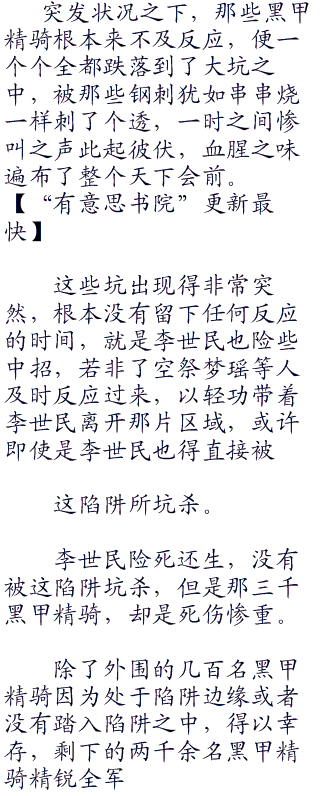 突发状况之下，那些黑甲
精骑根本来不及反应，便一
个个全都跌落到了大坑之
中，被那些钢刺犹如串串烧
一样刺了个透，一时之间惨
叫之声此起彼伏，血腥之味
遍布了整个天下会前。
【“有意思书院”更新最
快】
这些坑出现得非常突
然，根本没有留下任何反应
的时间，就是李世民也险些
中招，若非了空祭梦瑶等人
及时反应过来，以轻功带着
李世民离开那片区域，或许
即使是李世民也得直接被
这陷阱所坑杀。
李世民险死还生，没有
被这陷阱坑杀，但是那三千
黑甲精骑，却是死伤惨重。
除了外围的几百名黑甲
精骑因为处于陷阱边缘或者
没有踏入陷阱之中，得以幸
存，剩下的两千余名黑甲精
骑精锐全军